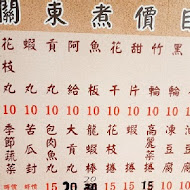 關東煮價目
花枝丸 10
蝦丸 10
貢丸 10
阿給 10
魚板 10
花干 10
甜片 10
竹輪 10
黑輪 10
季節蔬菜 時價
苦瓜封 15
包肉魚丸 15
大貢丸 20
龍蝦棒 20
花枝捲
蝦捲
高麗菜捲 15
凍豆腐